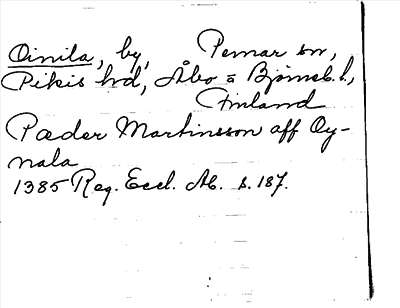 Oinila, by, Pemar sn,
Pikis hd, Åbo o Björneb. l.,
Finland
Pæder Martinsson aff Oy-
nala
1385 Reg. Eccl. Ab. s. 187.